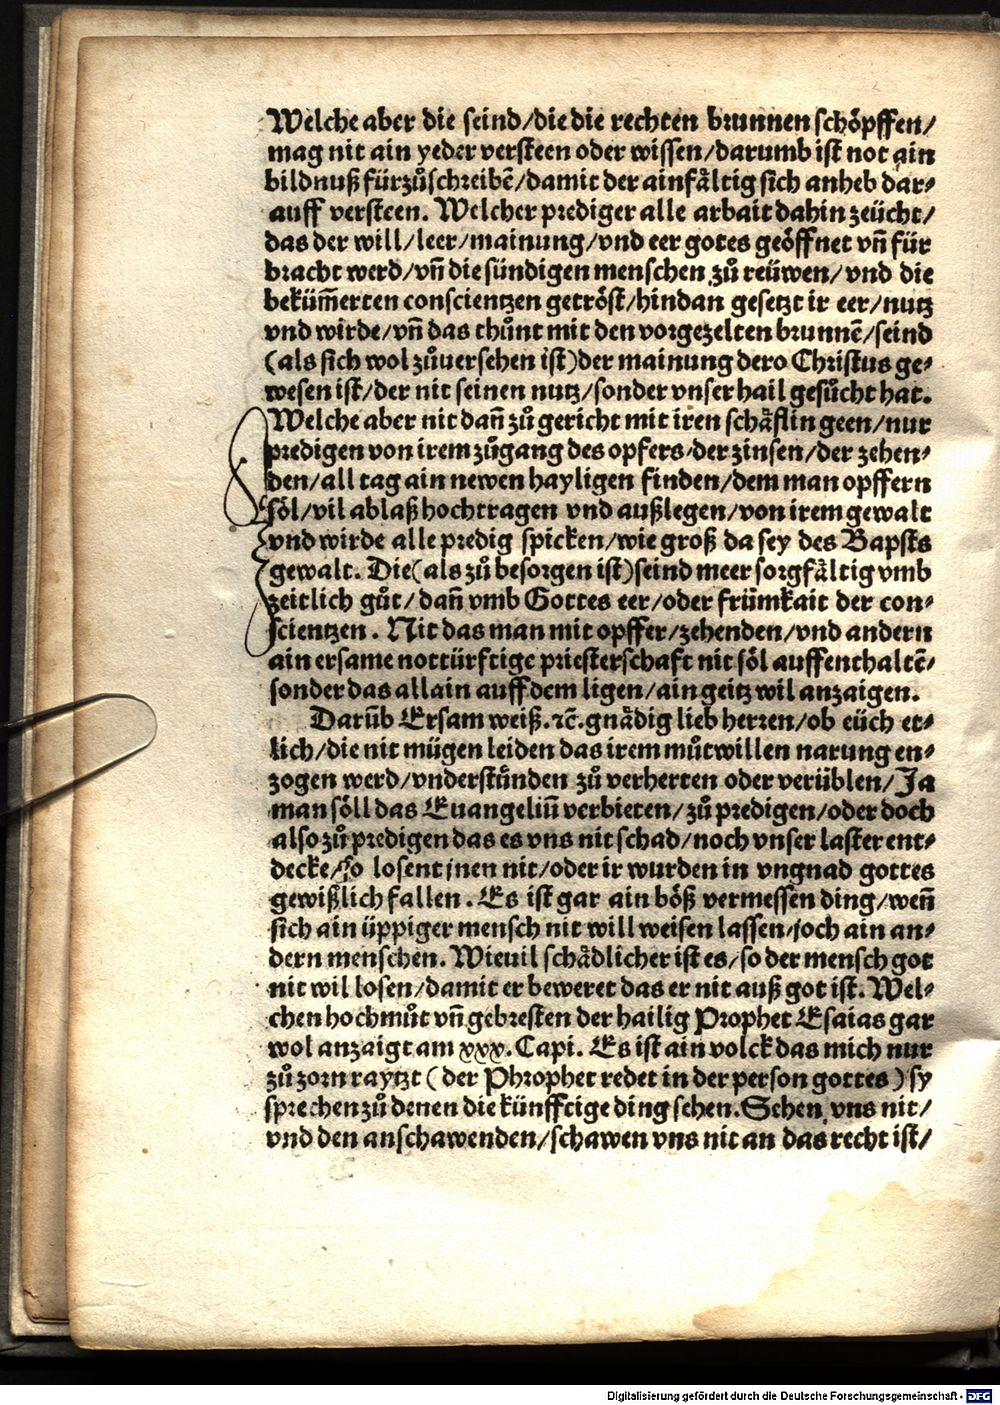 Welche aber die seind/die die rechten brunnen schöpffen/
mag nit ain yeder versteen oder wissen/darumb ist not ain
bildnuß fürzůschreibẽ/damit der ainfältig sich anheb dar⸗
auff versteen. Welcher prediger alle arbait dahin zeücht/
das der will/leer/mainung/vnd eer gotes geöffnet vñ für
bracht werd/vñ die sündigen menschen zů reüwen/vnd die
beküm̃erten conscientzen getröst/hindan gesetzt ir eer/nutz
vnd wirde/vñ das thůnt mit den vorgezelten brunnẽ/seind
(als sich wol zůuersehen ist)der mainung dero Christus ge⸗
wesen ist/der nit seinen nutz/sonder vnser hail gesůcht hat.
Welche aber nit dañ zů gericht mit iren schäflin geen/nur
predigen von irem zůgang des opfers/der zinsen/der zehen⸗
den/all tag ain newen hayligen finden/dem man opffern
söl/vil ablaß hochtragen vnd außlegen/von irem gewalt
vnd wirde alle predig spicken/wie groß da sey des Bapsts
gewalt. Die(als zů besorgen ist)seind meer sorgfältig vmb
zeitlich gůt/dañ vmb Gottes eer/oder frümkait der con⸗
scientzen. Nit das man mit opffer/zehenden/vnd andern
ain ersame notturftige priesterschaft nit söl auffenthaltẽ/
sonder das allain auff dem ligen/ain geitz wil anzaigen.
Darũb Ersam weiß.ꝛc̃.gnädig lieb herren/ob eüch et⸗
lich/die nit mügen leiden das irem můtwillen narung en⸗
zogen werd/vnderstůnden zů verherten oder verüblen/Ja
man söll das Euangeliũ verbieten/zů predigen/oder doch
also zů predigen das es vns nit schad/noch vnser laster ent⸗
decke/So losent jnen nit/oder ir wurden in vngnad gottes
gewißlich fallen. Es ist gar ain böß vermessen ding/weñ
sich ain üppiger mensch nit will weisen lassen/joch ain an⸗
dern menschen. Wieuil schädlicher ist es/so der mensch got
nit wil losen/damit er beweret das er nit auß got ist. Wel⸗
chen hochmůt vñ gebresten der hailig Prophet Esaias gar
wol anzaigt am xxx. Capi. Es ist ain volck das mich nur
zů zorn raytzt (der Phrophet redet in der person gottes) sy
sprechen zů denen die künfftige ding sehen. Sehen vns nit/
vnd den anschawenden/schawen vns nit an das recht ist/
Digitalisierung gefördert durch die Deutsche Forschungsgemeinschaft - DFG